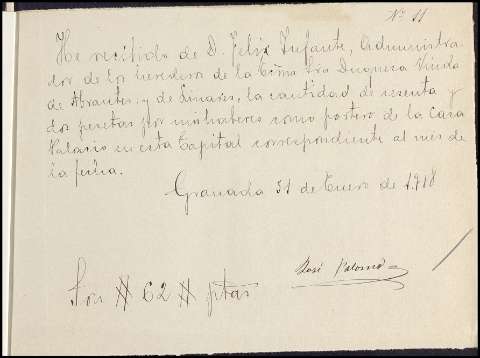 Nº 11
He recibido de D. Felix Infante, Administra-
dor de los herederos de la Excma Sra Duquesa Viuda
de Abrantes y de Linares, la cantidad de sesenta y
dos pesetas por mis haberes como portero de la Casa
Palacio en esta Capital correspondiente al mes de
la fecha.
Granada 31 de Enero de 1.918
José Palomo
Son # 62 # ptas